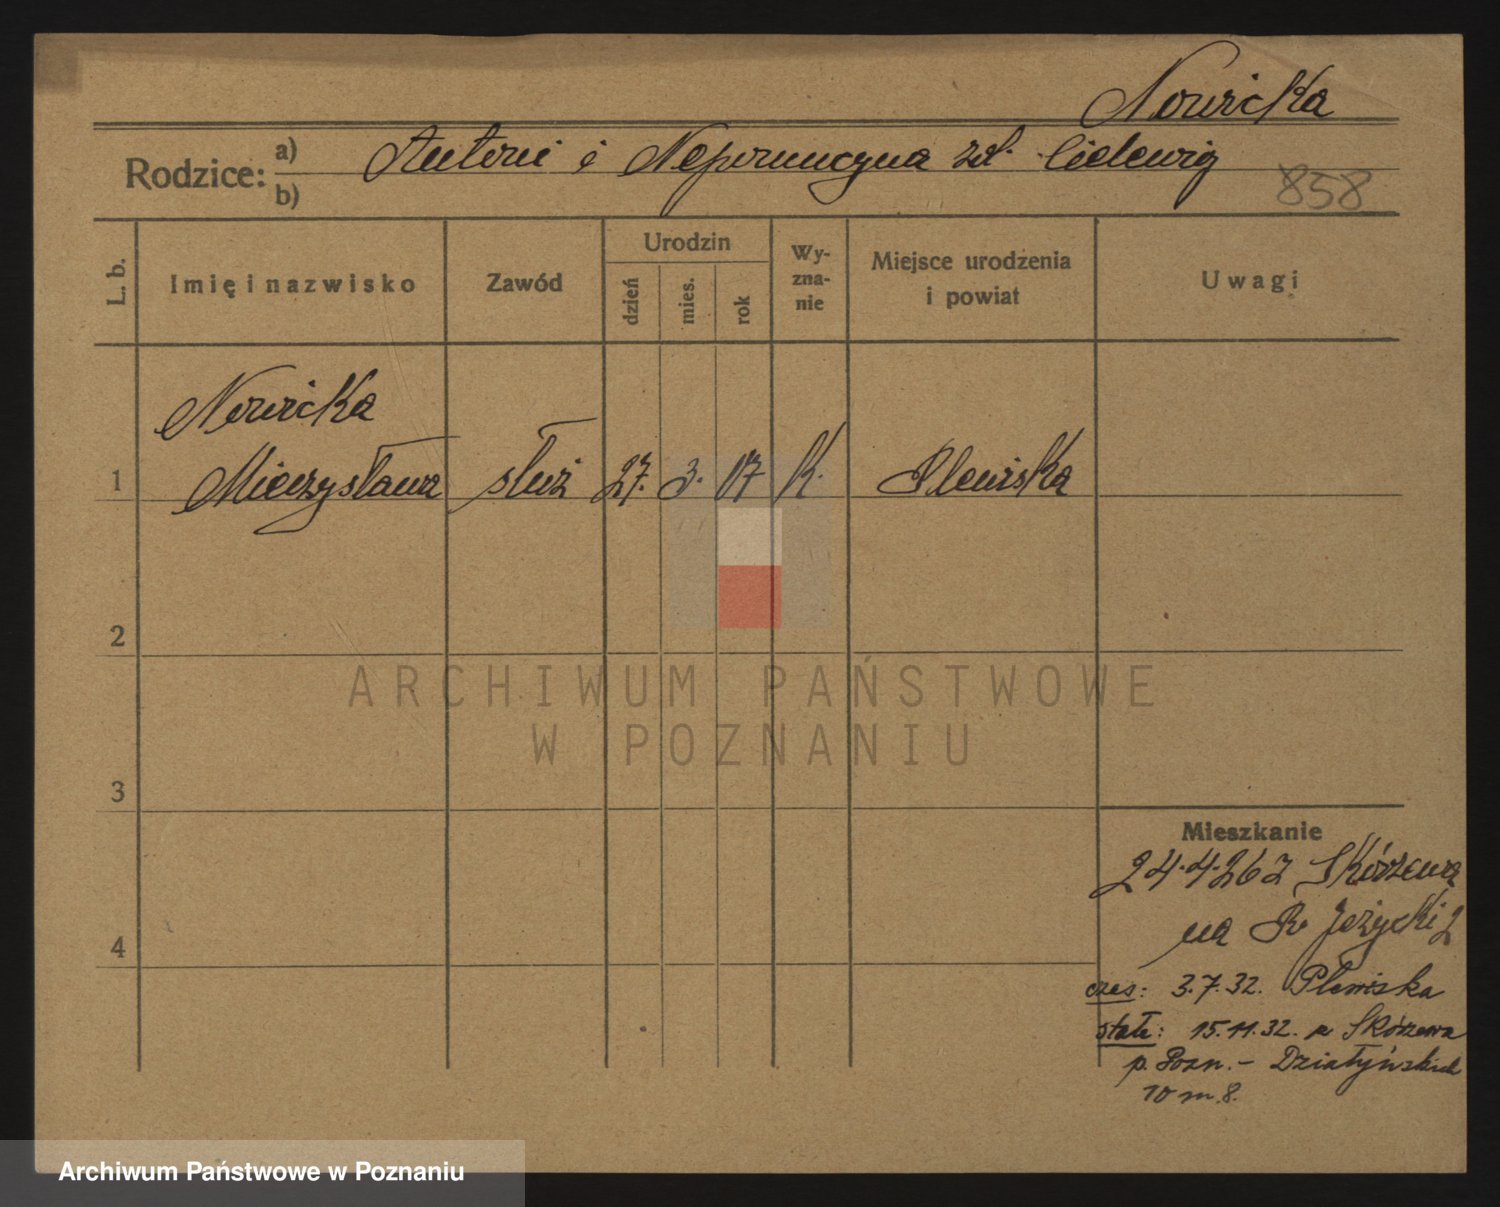 Nowicka
Rodzice: a) Antoni i Nepomucyna zd.
b)
858
L. b. Imię i nazwisko Zawód Urodzin dzień mies. rok Wy-zna-nie Miejsce urodzenia i powiat Uwagi
Nowicka
1 Mieczysława służ 27. 3. 07 K. Plewiska
2
3
4
Mieszkanie
24.4.26 z Skórzewa
na R Jeżycki 2
czas: 3.7.32. Plewiska
stałe: 15.11.32. z Skórzewa
p. Pozn. - Działyńskich
10 m. 8.
ARCHIWUM PAŃSTWOWE
W POZNANIU
Archiwum Państwowe w Poznaniu